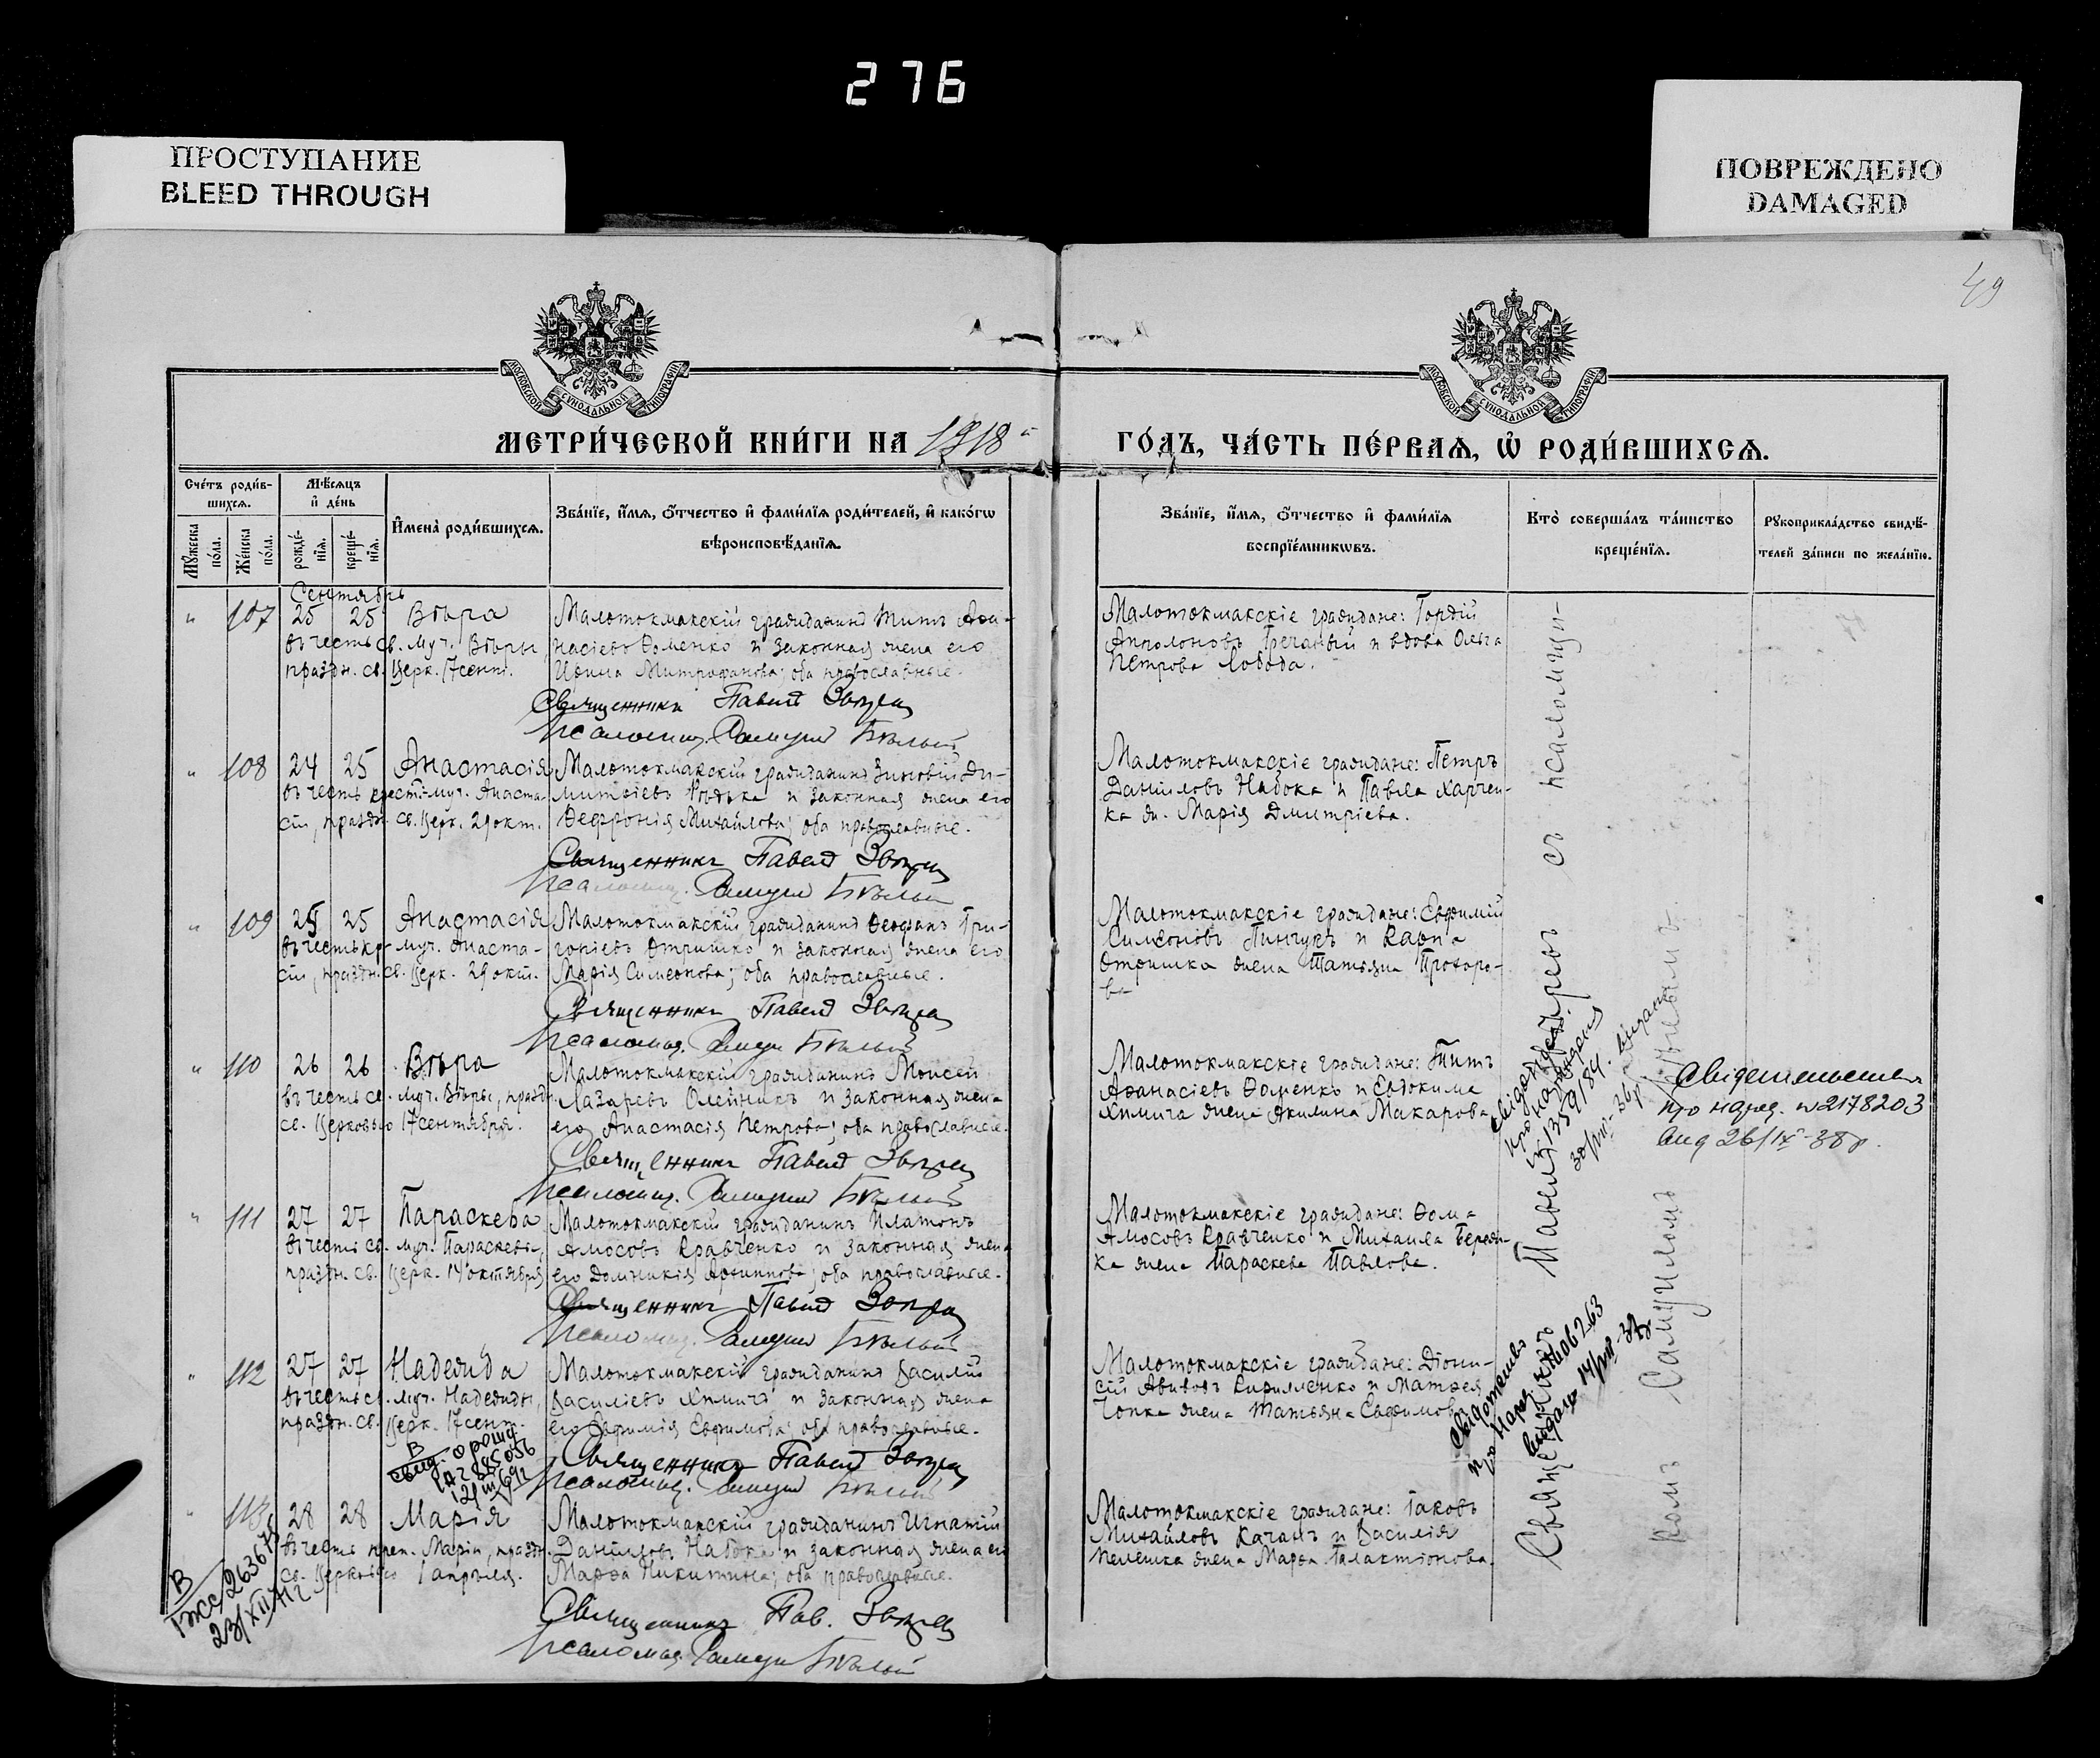 276
ПРОСТУПАНИЕ
BLEED THROUGH
ПОВРЕЖДЕНО
DAMAGED
49
МОСКОВСКОЙ СѴНОДАЛЬНОЙ ТИПОГРАФІИ
МОСКОВСКОЙ СѴНОДАЛЬНОЙ ТИПОГРАФІИ
МЕТРИ́ЧЕСКОЙ КНИ́ГИ НА 1918
ГО́ДЪ, ЧА́СТЬ ПЕ́РВАѦ, Ѡ҆ РОДИ́ВШИХСѦ.
Сче́тъ роди́в-
шихсѧ.
Мꙋ́жеска по́ла.
Же́нска по́ла.
Мѣ́сѧцъ
и҆ де́нь
рожде́-
нїѧ.
креще́-
нїѧ.
И҆мена̀ роди́вшихсѧ.
Зва́нїе, и҆́мѧ, ѻ҆́тчество и҆ фами́лїѧ роди́телей, и҆ како́гѡ
вѣроисповѣ́данїѧ.
Зва́нїе, и҆́мѧ, ѻ҆́тчество и҆ фами́лїѧ
воспрїе́мникѡвъ.
Кто̀ соверша́лъ та́инство
креще́нїѧ.
Рꙋкоприкла́дство свидѣ́-
телей за́писи по жела́нїю.
Сентябрь
" 107 25 25 Вѣра
въ честь св. муч. Вѣры
праздн. св. Церк. 17 сент.
Малотокмакскій гражданинъ Титъ Аѳа-
насіевъ Ѳоменко и законная жена его
Митрофанова; оба православные.
Священникъ Павелъ
Псаломщ. Самуилъ Бѣлый
Малотокмакскіе граждане: Гордій
Гречаный и вдова Ольга
Петрова Лобода.
" 108 24 25 Анастасія
въ честь муч. Анаста-
сіи, праздн. св. Церк. 29 окт.
Малотокмакскій гражданинъ Зиновій Ди-
митріевъ и законная жена его
Ѳеѳронія Михайлова; оба православные.
Священникъ Павелъ
Псаломщ. Самуилъ Бѣлый
Малотокмакскіе граждане: Петръ
Даниловъ Набока и Павла Харчен-
ка ж. Марія Дмитріева.
" 109 25 25 Анастасія
въ честь пр-муч. Анаста-
сіи, праздн. св. Церк. 29 окт.
Малотокмакскій гражданинъ Ѳеофанъ Гри-
горіевъ Отришко и законная жена его
Марія Симеонова; оба православные.
Священникъ Павелъ
Псаломщ. Самуилъ Бѣлый
Малотокмакскіе граждане: Евфимій
Симеоновъ Пинчукъ и Карпа
Отришка жена Татьяна Прохоро-
ва
" 110 26 26 Вѣра
въ честь св. муч. Вѣры, праздн.
св. Церковью 17 сентября.
Малотокмакскій гражданинъ Моисей
Лазаревъ Олейникъ и законная жена
его Анастасія Петрова; оба православные.
Священникъ Павелъ
Псаломщ. Самуилъ Бѣлый
Малотокмакскіе граждане: Титъ
Аѳанасіевъ Ѳоменко и Евдокима
Химича жена Акилина Макарова
" 111 27 27 Параскева
въ честь св. муч. Параскевы,
праздн. св. Церк. 14 октября
Малотокмакскій гражданинъ Платонъ
Амосовъ Кравченко и законная жена
его Домникія Архиппова; оба православные.
Священникъ Павелъ
Псаломщ. Самуилъ Бѣлый
Малотокмакскіе граждане: Ѳома
Амосовъ Кравченко и Михаила
ка жена Параскева Павлова.
" 112 27 27 Надежда
въ честь св. муч. Надежды,
праздн. св. Церк. 17 сент.
Малотокмакскій гражданинъ Василій
Василіевъ Химичъ и законная жена
его Евфимія Евфимова; оба православные.
Священникъ Павелъ
Псаломщ. Самуилъ Бѣлый
Малотокмакскіе граждане: Діони-
сій Авивовъ Кириленко и Матѳея
Чопка жена Татьяна Евфимова
" 113 28 28 Марія
въ честь преп. Маріи, праздн.
св. Церковью 1 апрѣля.
Малотокмакскій гражданинъ Игнатій
Даниловъ Набока и законная жена его
Марѳа Никитина; оба православные.
Священникъ Пав.
Псаломщ. Самуилъ Бѣлый
Малотокмакскіе граждане: Іаковъ
Михайловъ Качанъ и Василія
жена Марѳа Галактіонова.
Священникъ Павелъ съ псаломщи-
комъ Самуиломъ Бѣлымъ.
Свидетельство
про народ. № 2178203
вид 26/IX-38р.